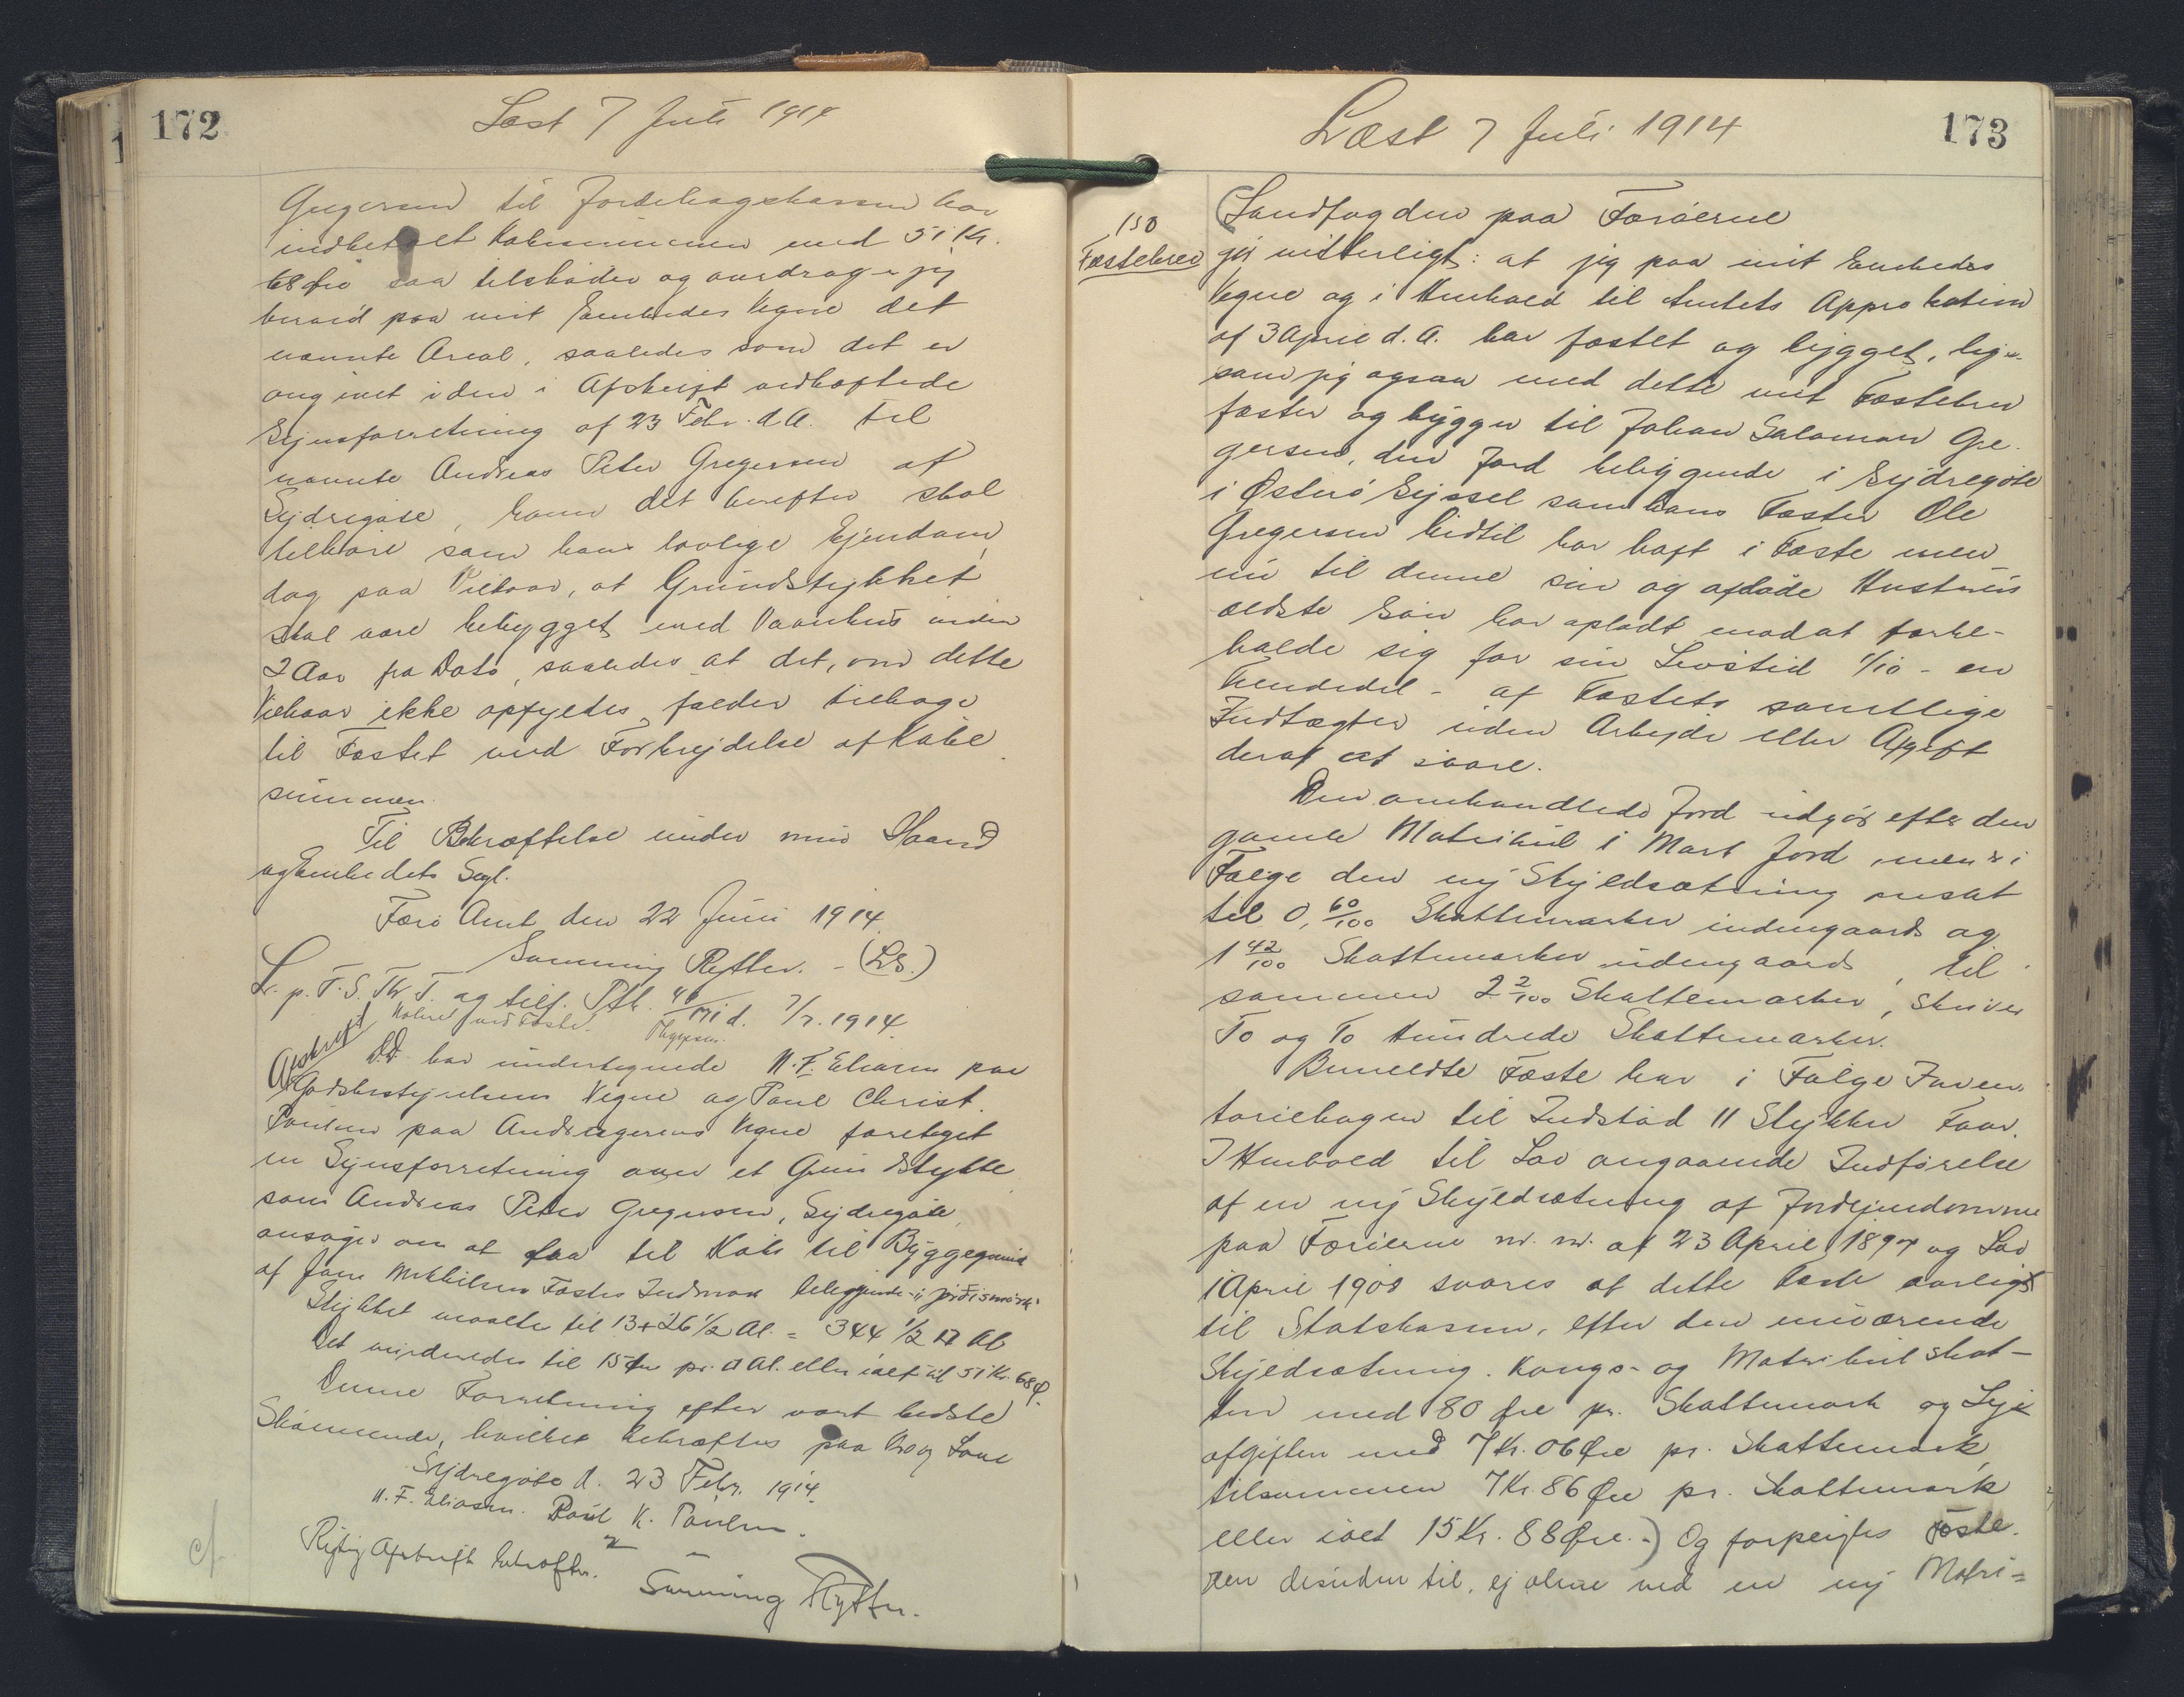 172
Læst 7 Juli 1914
Gregersen til Jordebogskassen har
indbetalt Købesummen med 51 Kr.
68 Øre saa tilskøder og overdrager jeg
herved paa mit Embedes Vegne det
nævnte Areal, saaledes som det er
angivet i den i Afskrift vedhæftede
Synsforretning af 23 Febr. d.A. til
nævnte Andreas Peter Gregersen af
Sydregøte, hvem det herefter skal
tilhøre som hans lovlige Ejendom,
dog paa Vilkaar, at Grundstykket
skal være bebygget med Vaanhus inden
2 Aar fra Dato, saaledes at det, om dette
Vilkaar ikke opfyldes, falder tilbage
til Fæstet med Forbrydelse af Købe
summen.
Til Bekræftelse under min Haand
og Embedets Segl.
Færø Amt den 22 Juni 1914.
Svenning Rytter. - (LS.)
L. p. F. S. Th. T. og tilf. Ptk. d. 7/7. 1914.
Noteret ved Fæste.
Afskrift
D.D. har undertegnede N. F. Eliasen paa
Godsbestyrelsens Vegne og Poul Christ.
Poulsen paa Andragerens Vegne foretaget
en Synsforretning over et Grundstykke
som Andreas Peter Gregersen, Sydregøte,
ansøger om at faa til Købs til Byggegrund
af Jane Mikkelsens Fæstes Indmark beliggende i
Stykket maalte til 13 + 26 1/2 Al. = 344 1/2 □ Al
Det vurderedes til 15 Øre pr. □ Al. eller ialt til 51 Kr. 68 Ø.
Denne Forretning efter vort bedste
Skønnende, hvilket bekræftes paa Tro og Love
Sydregøte d. 23 Febr. 1914.
N. F. Eliasen. Poul K. Poulsen.
Rigtig Afskrift bekræftes.
Svenning Rytter.
cf.
173
Læst 7 Juli 1914
150
Fæstebrev
(Landfogden paa Færøerne
gør vitterligt: at jeg paa mit Embedes
Vegne og i Henhold til Amtets Approbation
af 3 April d. A. har fæstet og bygget, lige-
som jeg ogsaa med dette mit Fæstebrev
fæster og bygger til Johan Salomon Gre-
gersen, den Jord beliggende i Sydregøte
i Østerø Syssel som hans Fader Ole
Gregersen hidtil har haft i Fæste men
nu til denne sin og afdøde Hustrus
ældste Søn har opladt mod at forbe-
holde sig for sin Levetid 1/10 - en
Tiendedel - af Fæstets samtlige
Indtægter uden Arbejde eller Afgift
deraf at svare.
Den omhandlede Jord udgør efter den
gamle Matrikul 1 Mark Jord men er i
Følge den ny Skyldsætning ansat
til 0,60/100 Skattemarker indengaards og
1 42/100 Skattemarker udengaards, til
sammen 2 2/100 Skattemarker, skriver
To og To Hundrede Skattemarker.
Bemeldte Fæste har i Følge Inven-
toriebogen til Indstød 11 Stykker Faar.
I Henhold til Lov angaaende Indførelse
af en ny Skyldsætning af Jordejendomme
paa Færøerne m. m. af 23 April 1897 og Lov
1 April 1900 svares af dette Fæste aarligt
til Statskassen, efter den nuværende
Skyldsætning. Konge- og Matrikulskat-
ten med 80 Øre pr. Skattemark og Leje
afgiften med 7 Kr. 06 Øre pr. Skattemark,
tilsammen 7 Kr. 86 Øre pr. Skattemark
eller ialt 15 Kr. 88 Øre.-) Og forpligtes Fæste-
ren desuden til, ej alene ved en ny Matri-